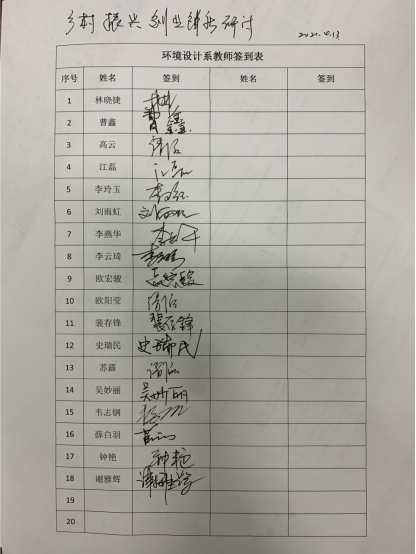 乡村振兴创业铺我研讨 2021.4.13
环境设计系教师签到表
序号 姓名 签到 姓名 签到
1 林晓捷 林
2 曹鑫 曹鑫
3 高云 请假
4 江磊 江磊
5 李玲玉 李玲玉
6 刘雨虹 刘雨虹
7 李燕华 李
8 李云琦 李云琦
9 欧宏骏
10 欧阳莹 请假
11 裴存锋 裴存锋
12 史瑞民 史瑞民
13 苏露 请假
14 吴妙丽 吴妙丽
15 韦志钢
16 薛白羽
17 钟艳 钟艳
18 谢雅辉
19
20